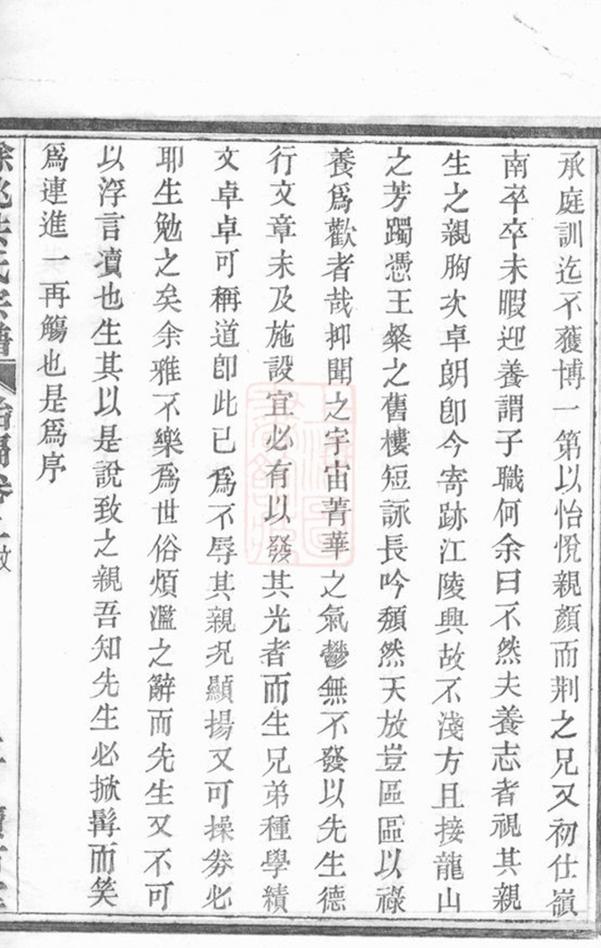 承庭訓迄不獲博一第以怡悅親顏而荆之兄又初仕嶺
南卒卒未暇迎養謂子職何余曰不然夫養志者視其親
生之親胸次卓朗卽今寄跡江陵興故不淺方且接龍山
之芳躅憑王粲之舊樓短詠長吟頹然天放豈區區以祿
養爲歡者哉抑聞之宇宙菁華之氣鬱無不發以先生德
行文章未及施設宜必有以發其光者而生兄弟種學績
文卓卓可稱道卽此已爲不辱其親況顯揚又可操券必
耶生勉之矣余雅不樂爲世俗煩濫之辭而先生又不可
以浮言瀆也生其以是說致之親吾知先生必掀髯而笑
爲連進一再觴也是爲序